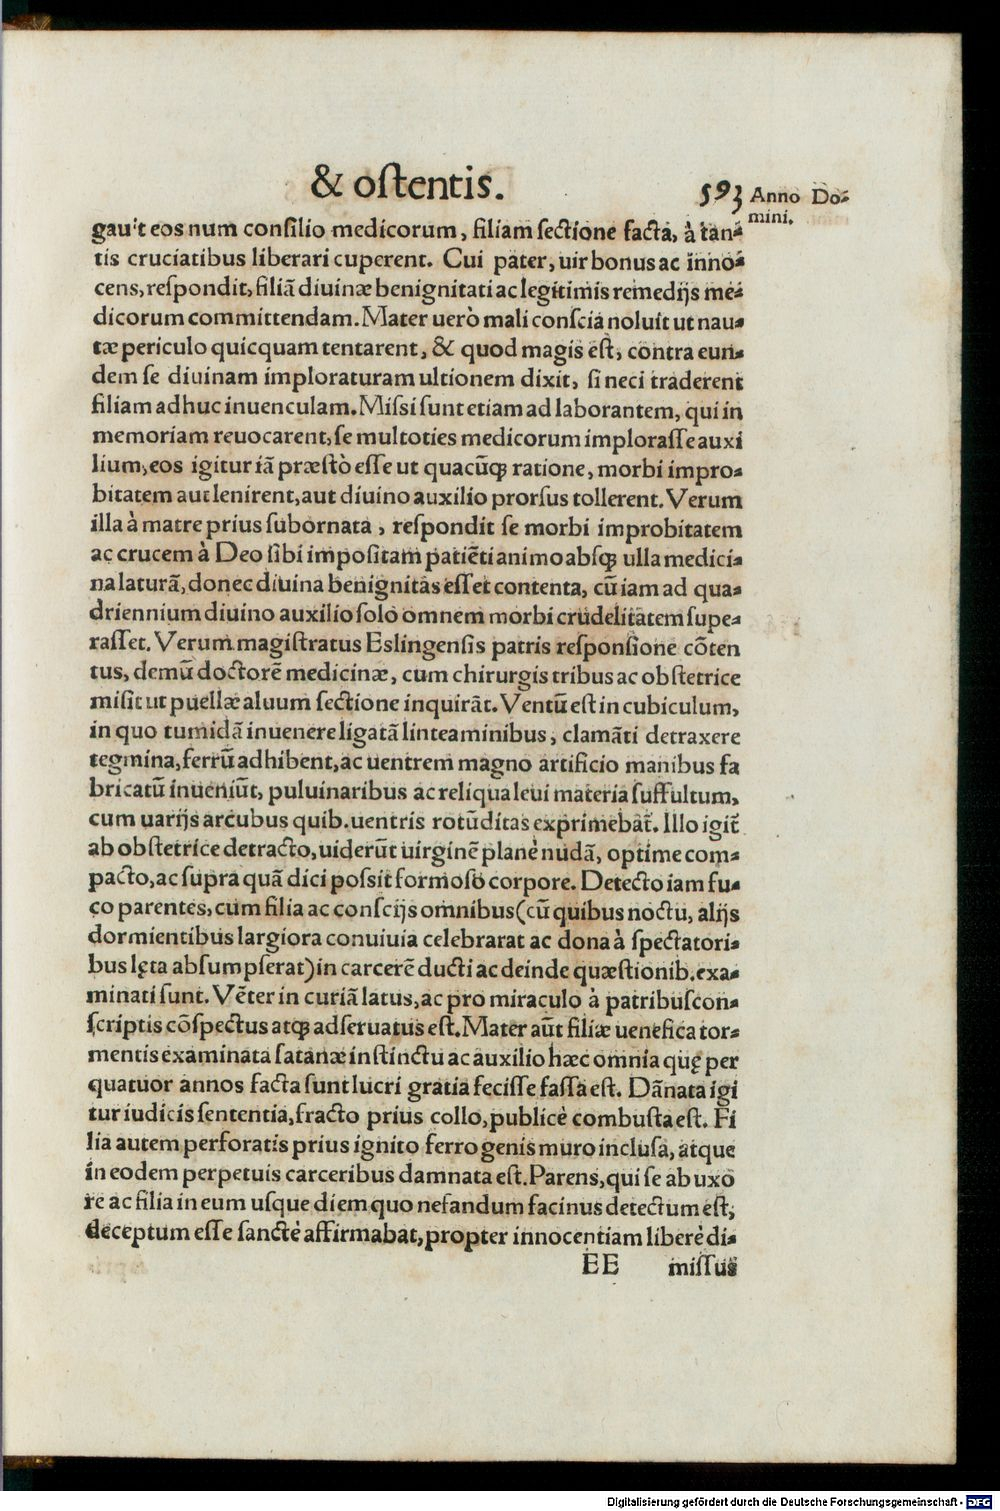 & oſtentis.
593 Anno Do-
mini.
gauit eos num conſilio medicorum, filiam ſectione facta, à tan-
tis cruciatibus liberari cuperent. Cui pater, uir bonus ac inno-
cens, reſpondit, filiā diuinæ benignitati ac legitimis remedijs me-
dicorum committendam. Mater uerò mali conſcia noluit ut nau-
tæ periculo quicquam tentarent, & quod magis eſt, contra eun-
dem ſe diuinam imploraturam ultionem dixit, ſi neci traderent
filiam adhuc iuuenculam. Miſsi ſunt etiam ad laborantem, qui in
memoriam reuocarent, ſe multoties medicorum imploraſſe auxi
lium, eos igitur iā præſtò eſſe ut quacūq; ratione, morbi impro-
bitatem aut lenirent, aut diuino auxilio prorſus tollerent. Verum
illa à matre prius ſubornata, reſpondit ſe morbi improbitatem
ac crucem à Deo ſibi impoſitam patiēti animo abſq; ulla medici-
na laturā, donec diuina benignitas eſſet contenta, cū iam ad qua-
driennium diuino auxilio ſolo omnem morbi crudelitatem ſupe-
raſſet. Verum magiſtratus Eslingenſis patris reſponſione cōten
tus, demū doctorē medicinæ, cum chirurgis tribus ac obſtetrice
miſit ut puellæ aluum ſectione inquirāt. Ventū eſt in cubiculum,
in quo tumidā inuenere ligatā linteaminibus, clamāti detraxere
tegmina, ferrū adhibent, ac uentrem magno artificio manibus fa
bricatū inueniūt, puluinaribus ac reliqua leui materia ſuffultum,
cum uarijs arcubus quib. uentris rotūditas exprimebat̄. Illo igit̄
ab obſtetrice detracto, uiderūt uirginē planè nudā, optime com-
pacto, ac ſupra quā dici poſsit formoſo corpore. Detecto iam fu-
co parentes, cum filia ac conſcijs omnibus (cū quibus noctu, alijs
dormientibus largiora conuiuia celebrarat ac dona à ſpectatori-
bus lęta abſumpſerat) in carcerē ducti ac deinde quæſtionib. exa-
minati ſunt. Vēter in curiā latus, ac pro miraculo à patribus con-
ſcriptis cōſpectus atq; adſeruatus eſt. Mater aūt filiæ uenefica tor-
mentis examinata ſatanæ inſtinctu ac auxilio hæc omnia quę per
quatuor annos facta ſunt lucri gratia feciſſe faſſa eſt. Dānata igi
tur iudicis ſententia, fracto prius collo, publicè combuſta eſt. Fi
lia autem perforatis prius ignito ferro genis muro incluſa, atque
in eodem perpetuis carceribus damnata eſt. Parens, qui ſe ab uxo
re ac filia in eum uſque diem quo nefandum facinus detectum eſt,
deceptum eſſe ſanctè affirmabat, propter innocentiam liberè di-
EE miſſus
Digitalisierung gefördert durch die Deutsche Forschungsgemeinschaft - DFG